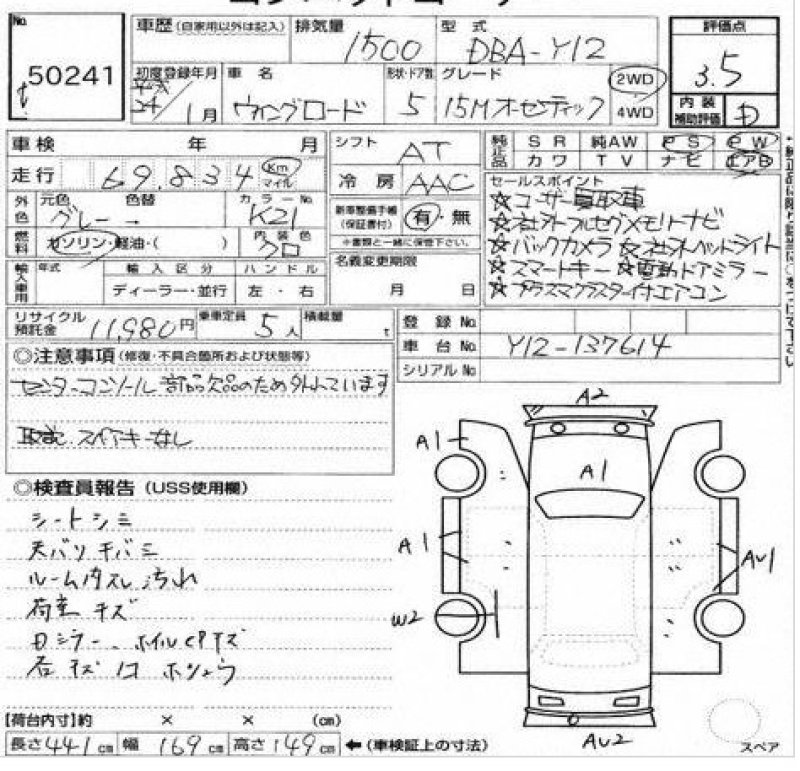 コンパクトコーナー
No. 50241
車歴 (自家用以外は記入) 排気量 1500 型式 DBA-Y12 評価点 3.5
初度登録年月 平成 24/1月 車名 ウィングロード 形状・ドア数 5 グレード 15Mオーセンティック 2WD 4WD
内装補助評価 D
車検 年 月 シフト AT 純正品 SR 純AW PS PW
カワ TV ナビ エアB
走行 69,834 Km マイル 冷房 AAC
外色 元色 グレー → 色替 カラーNo. K21
燃料 ガソリン・軽油・( ) 内装色 クロ
新車整備手帳 (保証書付) 有・無
※書類と一緒に保管下さい。
セールスポイント
☆ユーザー買取車
☆社外フルセグメモリーナビ
☆バックカメラ ☆社外ヘッドライト
☆スマートキー ☆電動ドアミラー
☆プラズマクラスター付エアコン
輸入車用 年式 輸入区分 ハンドル
ディーラー・並行 左・右
名義変更期限
月 日
リサイクル預託金 11,980円 乗車定員 5人 積載量 t
登録No.
車台No. Y12-137614
シリアルNo.
◎注意事項 (修復・不具合箇所および状態等)
センターコンソール部品欠品のため外れています
取説、スペアキーなし
◎検査員報告 (USS使用欄)
シートシミ
天バリキバミ
ルーム内スレ汚れ
荷室キズ
ホイルcPキズ
A2
A1
A1
A1
AU1
W2
AU2
スペア
【荷台内寸】約 × × (cm)
長さ441cm 幅169cm 高さ149cm ←(車検証上の寸法)